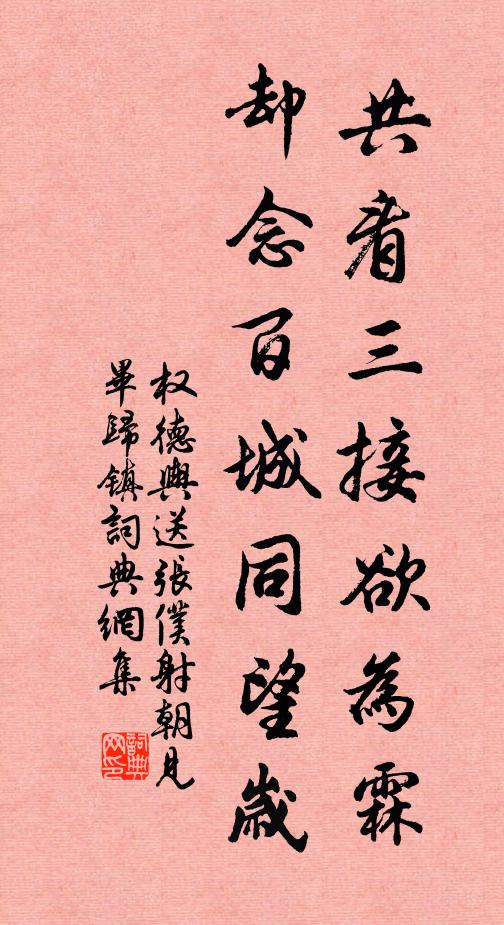 共看三接欲為霖
却念百城同望歲
权德輿送張僕射朝見
畢歸鎮詞典網集
詞典
网印